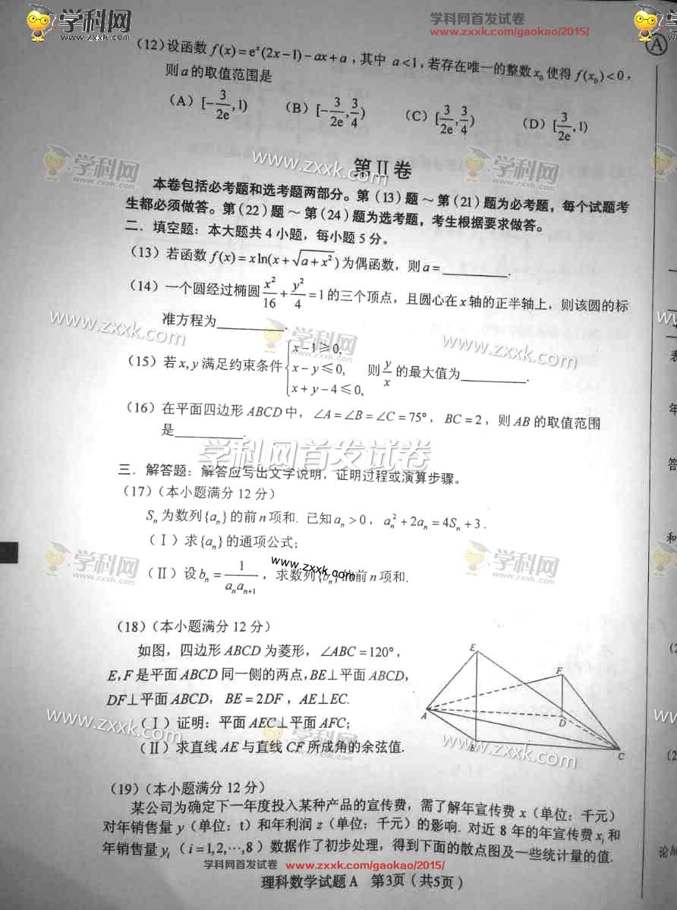 学科网
www.zxxk.com
学科网首发试卷
www.zxxk.com/gaokao/2015/
学科网
(12)设函数 f(x)=eˣ(2x−1)−ax+a，其中 a<1，若存在唯一的整数 x₀ 使得 f(x₀)<0，
则 a 的取值范围是
(A) [−3/2e, 1)  (B) [−3/2e, 3/4)  (C) [3/2e, 3/4)  (D) [3/2e, 1)
学科网
www.zxxk.com
学科网
第 II 卷
本卷包括必考题和选考题两部分。第（13）题～第（21）题为必考题，每个试题考
生都必须做答。第（22）题～第（24）题为选考题，考生根据要求做答。
二．填空题：本大题共 4 小题，每小题 5 分。
(13) 若函数 f(x)=x ln(x+√(a+x²)) 为偶函数，则 a=
(14) 一个圆经过椭圆 x²/16+y²/4=1 的三个顶点，且圆心在 x 轴的正半轴上，则该圆的标
准方程为
www.zxxk.com
学科网
www.zxxk.com
(15) 若 x, y 满足约束条件 { x−1≥0, x−y≤0, x+y−4≤0, 则 y/x 的最大值为
(16) 在平面四边形 ABCD 中，∠A=∠B=∠C=75°，BC=2，则 AB 的取值范围
是
学科网首发试卷
三．解答题：解答应写出文字说明，证明过程或演算步骤。
(17)（本小题满分 12 分）
Sₙ 为数列{aₙ}的前 n 项和. 已知 aₙ>0，aₙ²+2aₙ=4Sₙ+3.
（Ⅰ）求{aₙ}的通项公式;
学科网
www.zxxk.com
学科网
（Ⅱ）设 bₙ=1/(aₙaₙ₊₁)，求数列{bₙ}的前 n 项和.
(18)（本小题满分 12 分）
如图，四边形 ABCD 为菱形，∠ABC=120°，
E, F 是平面 ABCD 同一侧的两点，BE⊥平面 ABCD，
DF⊥平面 ABCD，BE=2DF，AE⊥EC.
（Ⅰ）证明：平面 AEC⊥平面 AFC;
（Ⅱ）求直线 AE 与直线 CF 所成角的余弦值.
E
F
A
D
B
C
www.zxxk.com
学科网
www.zxxk.com
(19)（本小题满分 12 分）
某公司为确定下一年度投入某种产品的宣传费，需了解年宣传费 x（单位：千元）
对年销售量 y（单位：t）和年利润 z（单位：千元）的影响. 对近 8 年的年宣传费 xᵢ 和
年销售量 yᵢ（i=1,2,⋯,8）数据作了初步处理，得到下面的散点图及一些统计量的值.
学科网首发试卷 www.zxxk.com/gaokao/2015/
理科数学试题 A 第3页（共5页）